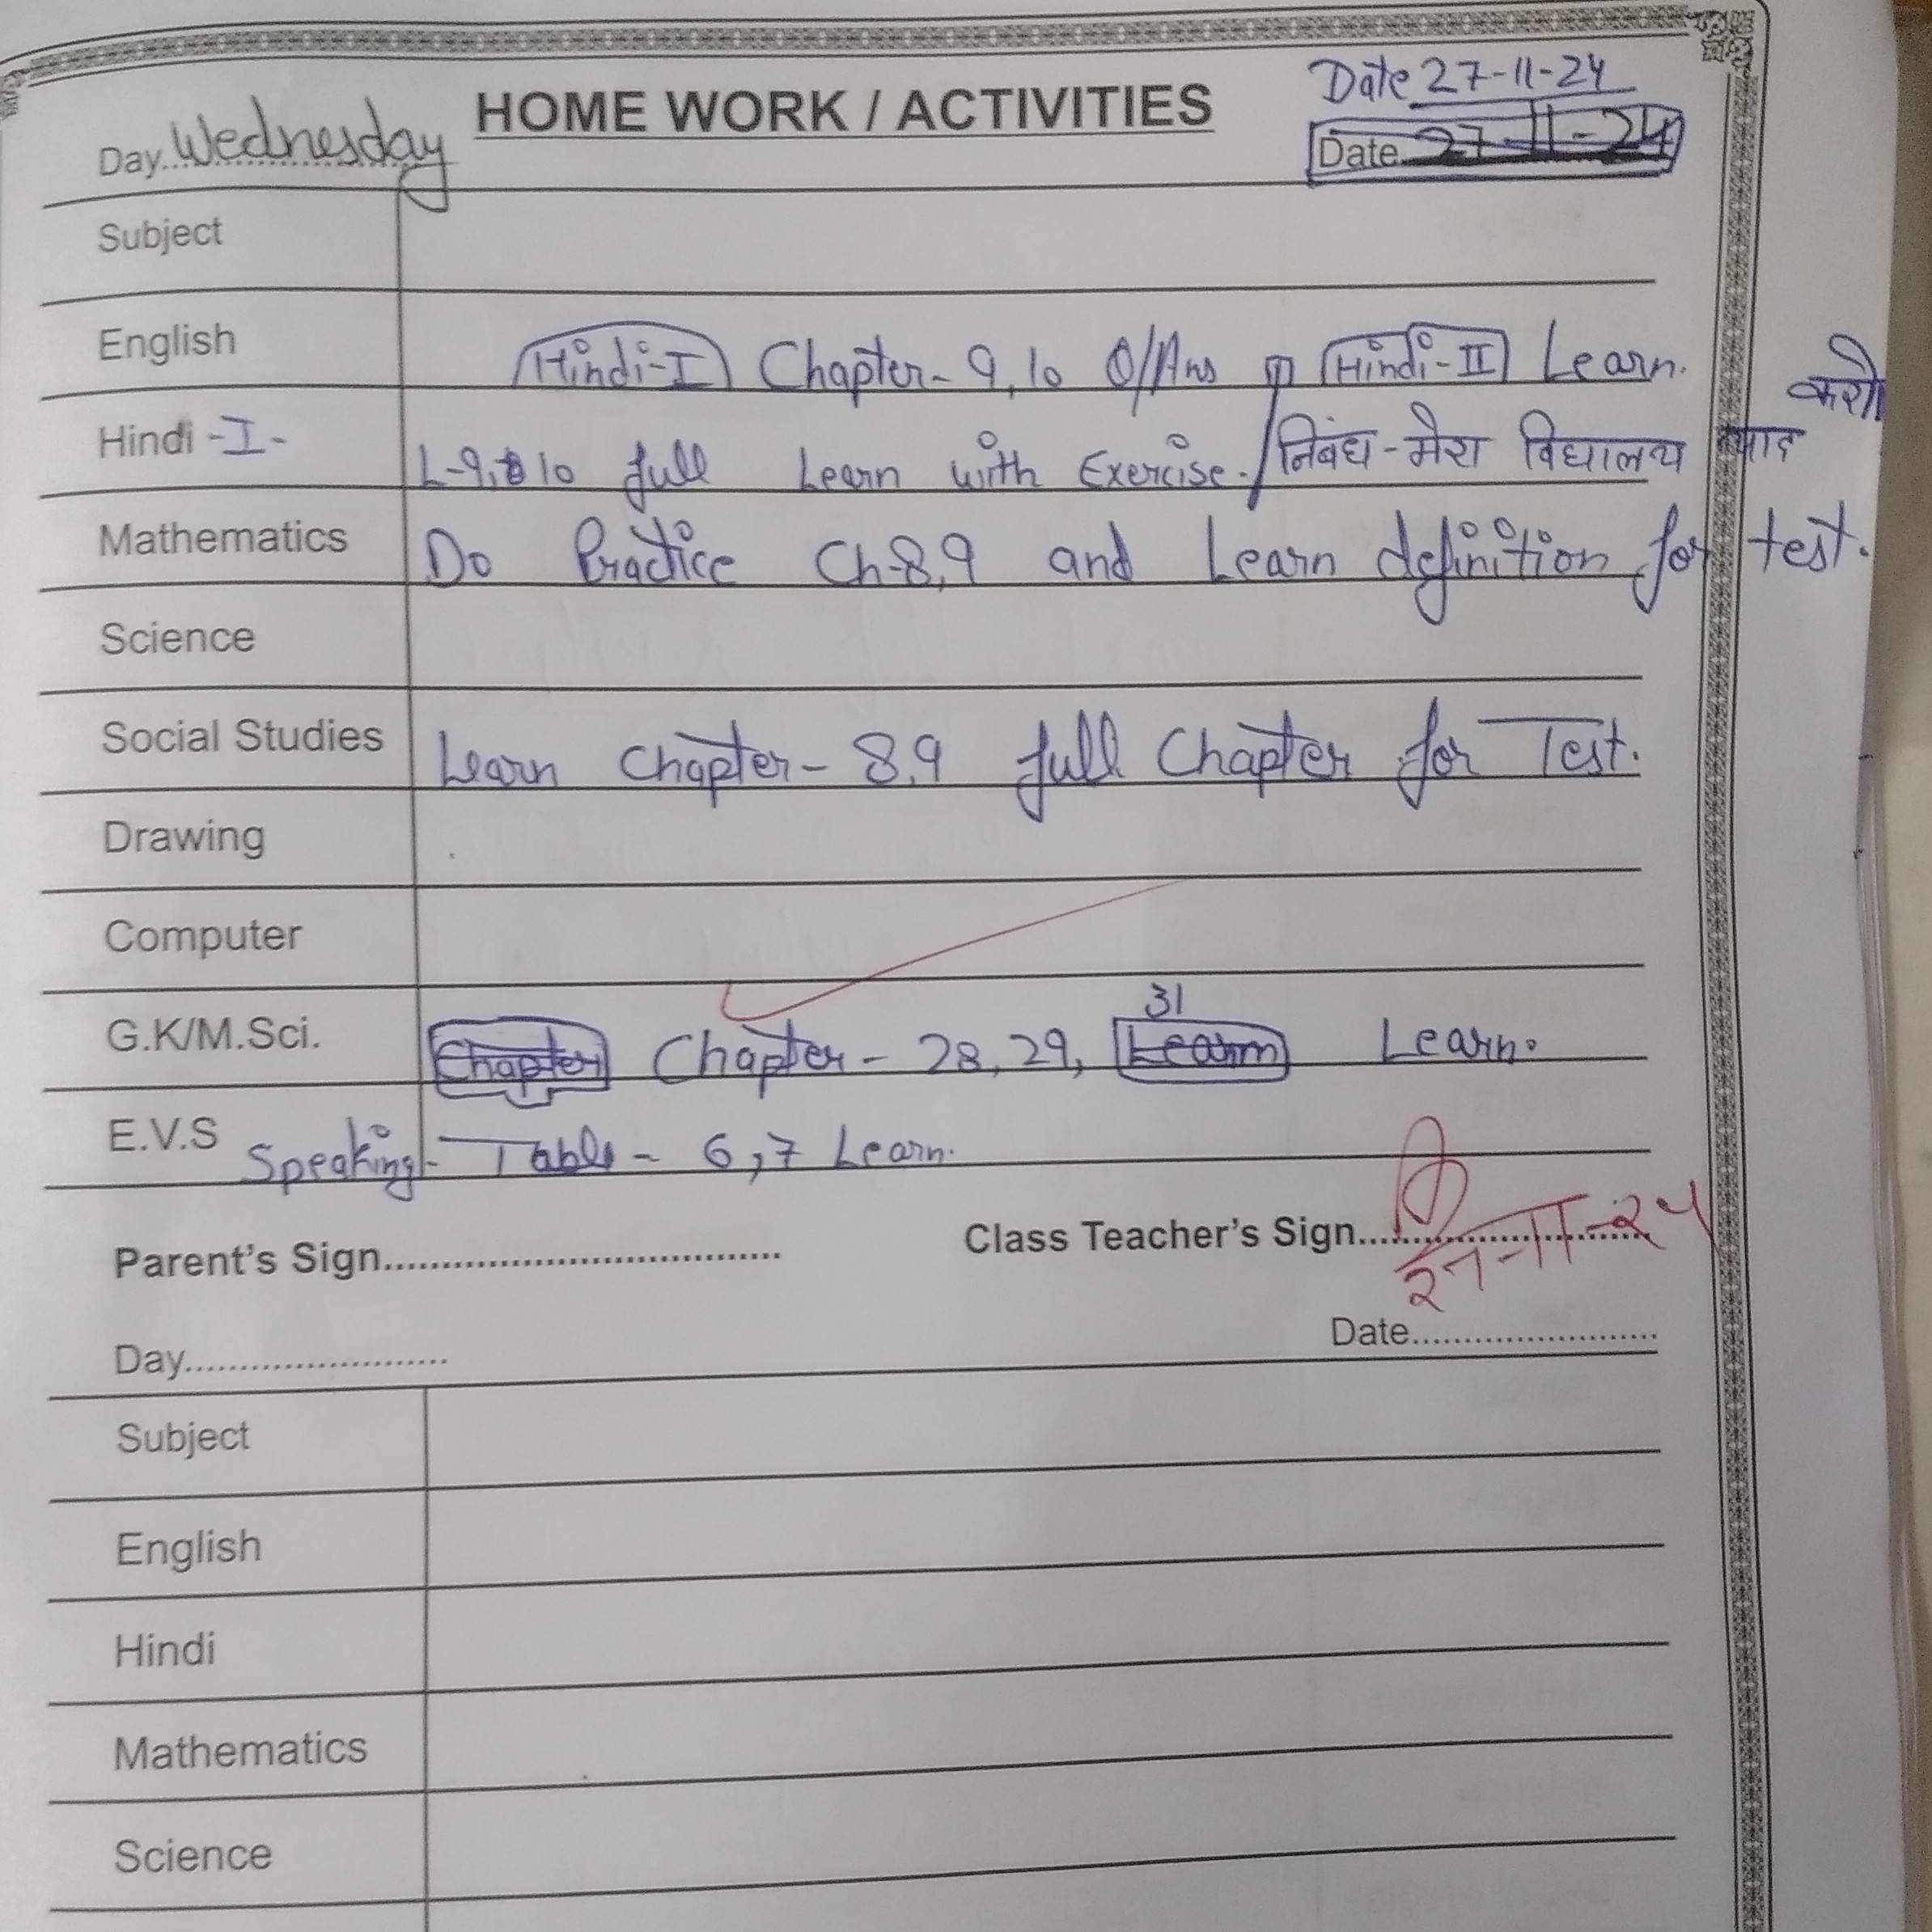 Date 27-11-24
HOME WORK / ACTIVITIES
Day Wednesday Date 27-11-24
Subject
English Hindi-I Chapter-9,10 Q/Ans Hindi-II Learn.
Hindi -I- L-9, 10 full Learn with Exercise. / निबंध-मेरा विद्यालय याद करो
Mathematics Do Practice Ch-8,9 and Learn definition for test.
Science
Social Studies Learn Chapter-8,9 full Chapter for Test.
Drawing
Computer
G.K/M.Sci. Chapter Chapter-28,29, 31 Learn Learn.
E.V.S Speaking- Table-6,7 Learn.
Parent's Sign........ Class Teacher's Sign........
27-11-24
Day........ Date........
Subject
English
Hindi
Mathematics
Science